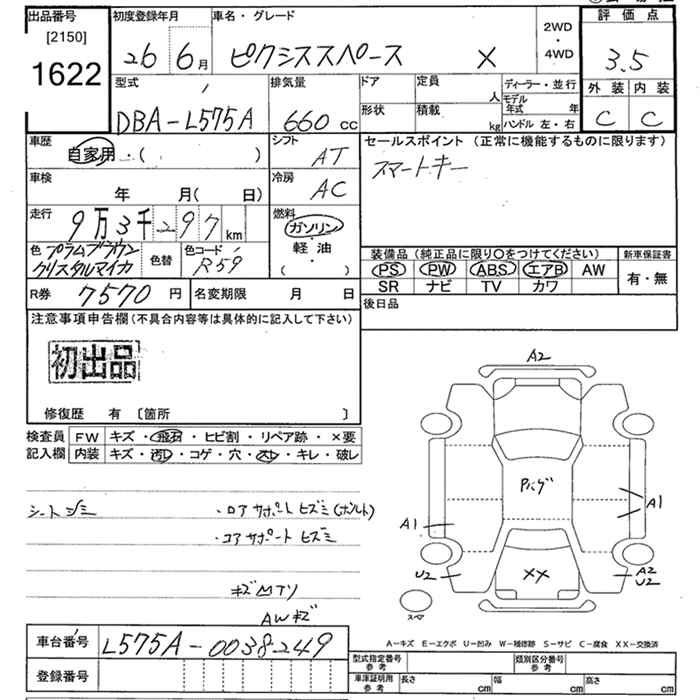 出品番号
[2150]
1622
初度登録年月
26 6月
車名・グレード
ピクシススペース X
2WD
・
4WD
評価点
3.5
外装 内装
C C
型式
DBA-L575A
排気量
660 cc
ドア
形状
定員
人
積載
kg
ディーラー・並行
モデル年式 年
ハンドル 左・右
車歴
自家用・( )
シフト
AT
セールスポイント (正常に機能するものに限ります)
スマートキー
車検
年 月( 日)
冷房
AC
走行
9万3千297 km
燃料
ガソリン
軽・油
( )
色 プラムブラウン
クリスタルマイカ
色替
色コード
R59
装備品 (純正品に限り〇をつけてください)
PS PW ABS エアB AW
SR ナビ TV カワ
新車保証書
有・無
R券 7570 円
名変期限 月 日
後日品
注意事項申告欄(不具合内容等は具体的に記入して下さい)
初出品
修復歴 有 〔箇所 〕
検査員
記入欄
FW キズ・飛石・ヒビ割・リペア跡・×要
内装 キズ・汚レ・コゲ・穴・スレ・キレ・破レ
シートシミ
・ロアサポートヒズミ(ボルト)
・コアサポートヒズミ
キズ
AWキズ
A2
A1
A1
U2
XX
A2
U2
スペア
A-キズ E-エクボ U-凹み W-補修跡 S-サビ C-腐食 XX-交換済
車台番号 L575A-0038249
登録番号
型式指定番号
参考
類別区分番号
参考
車庫証明用
参考
長さ cm 幅 cm 高さ cm